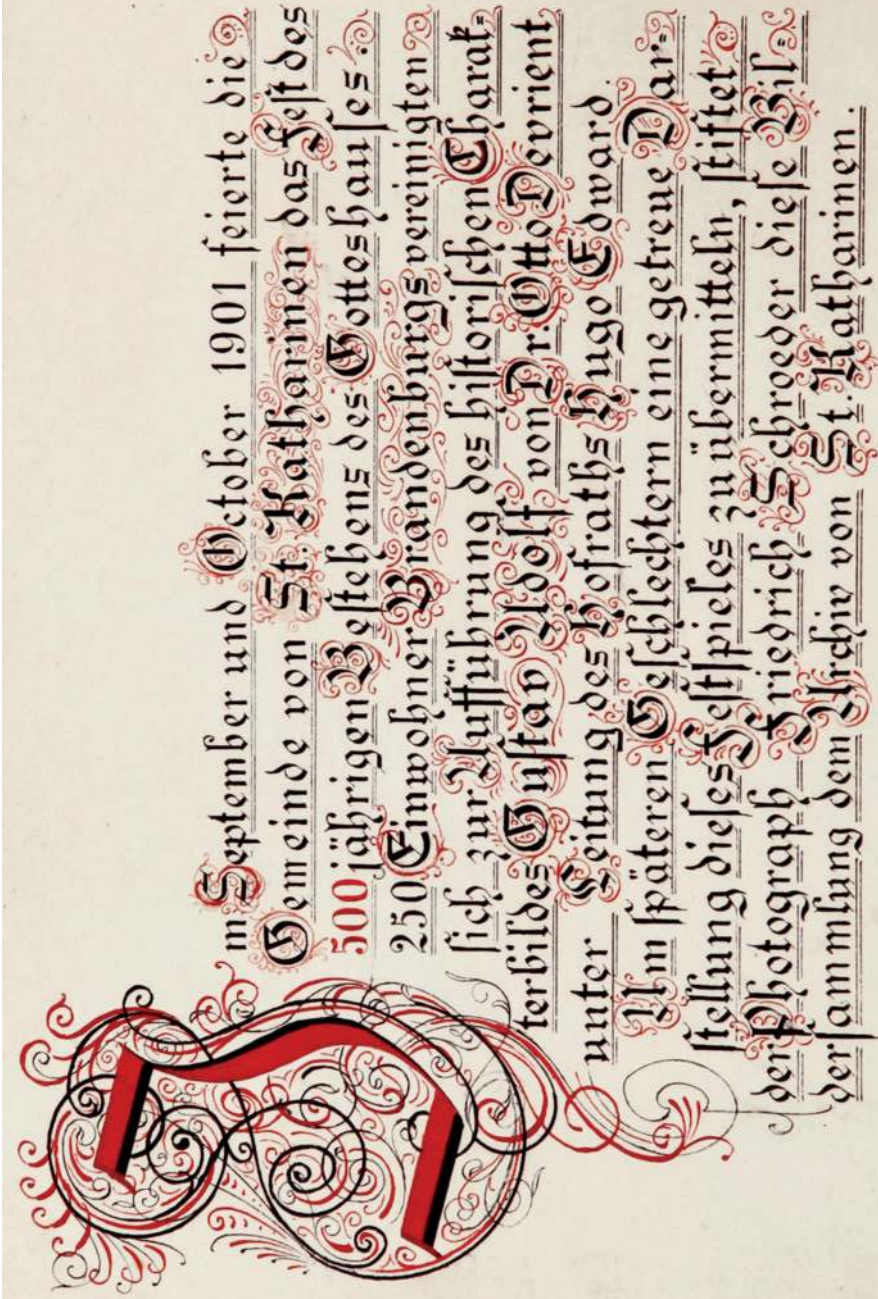 Im September und October 1901 feierte die
Gemeinde von St. Katharinen das Fest des
500jährigen Bestehens des Gotteshauses.
250 Einwohner Brandenburgs vereinigten
sich zur Aufführung des historischen Charak-
terbildes Gustav Adolf von Dr. Otto Devrient
unter Leitung des Hofraths Hugo Edward.
Um späteren Geschlechtern eine getreue Dar-
stellung dieses Festspieles zu übermitteln, stiftet
der Photograph Friedrich Schroeder diese Bil-
dersammlung dem Archiv von St. Katharinen.